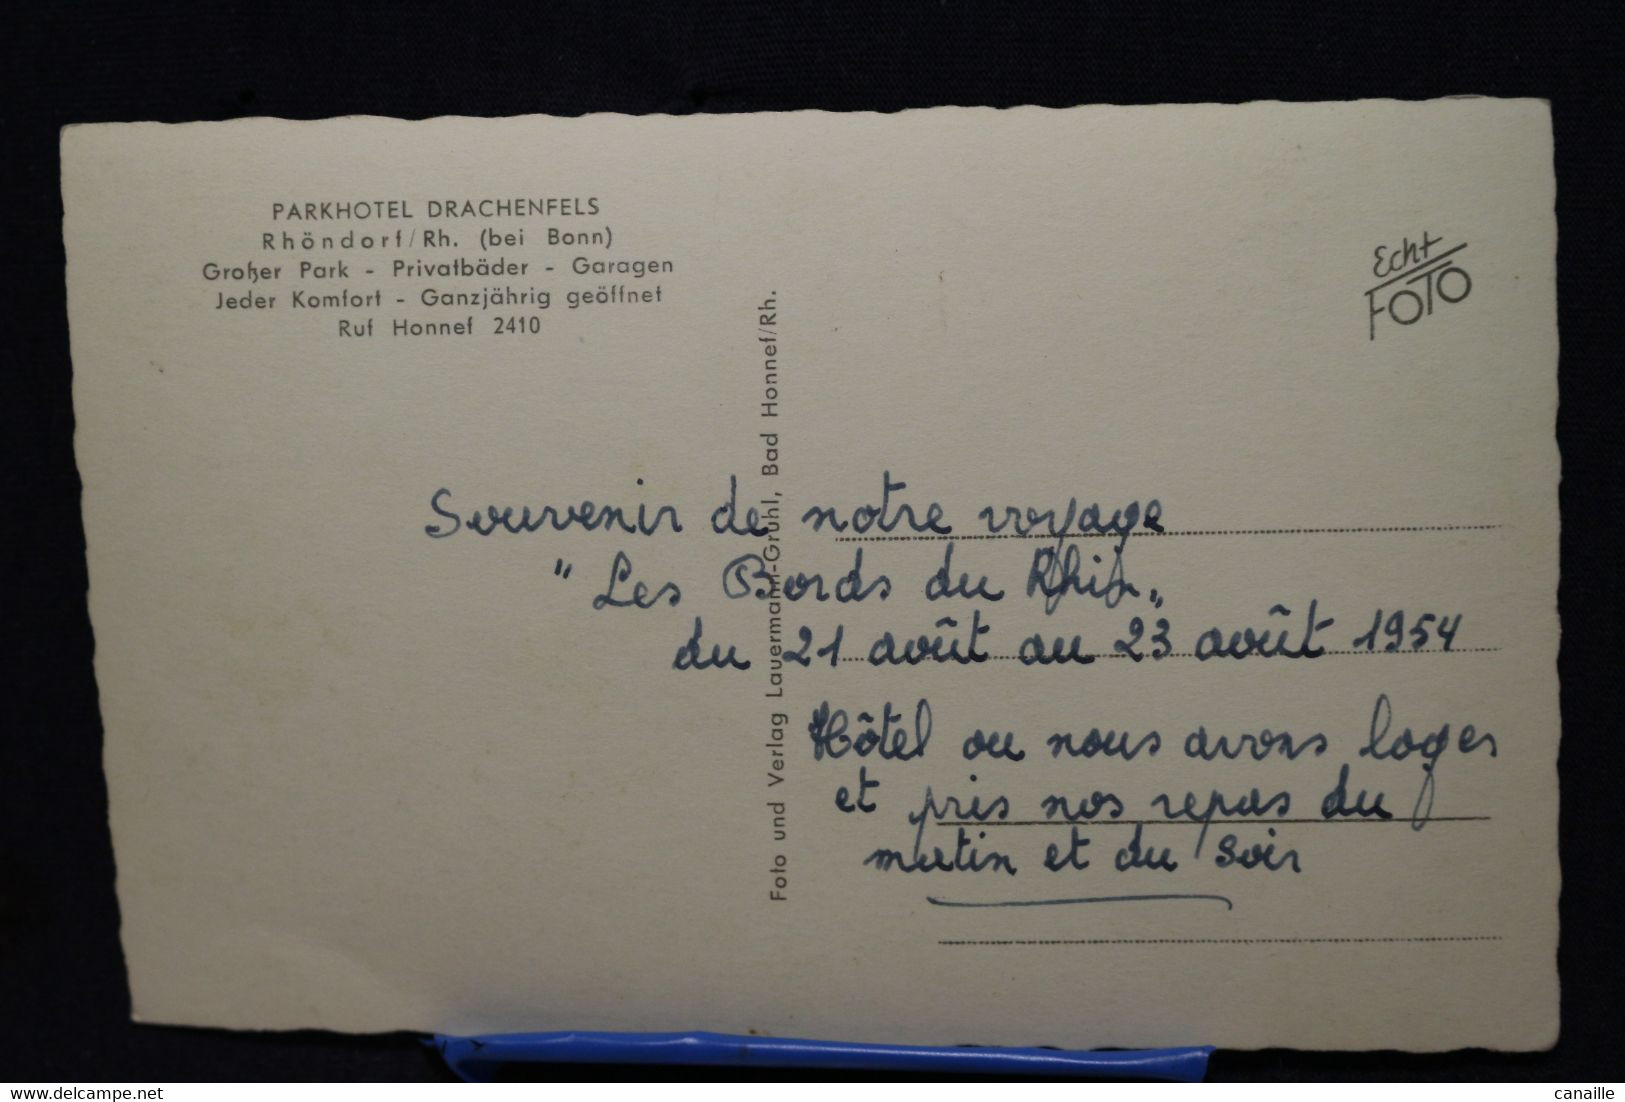 PARKHOTEL DRACHENFELS
Rhöndorf/Rh. (bei Bonn)
Großer Park - Privatbäder - Garagen
Jeder Komfort - Ganzjährig geöffnet
Ruf Honnef 2410
Echt
FOTO
Foto und Verlag Lauermann-Gruhl, Bad Honnef/Rh.
Souvenir de notre voyage
"Les Bords du Rhin"
du 21 août au 23 août 1954
Hôtel ou nous avons loger
et pris nos repas du
matin et du soir
https://www.delcampe.net
canaille